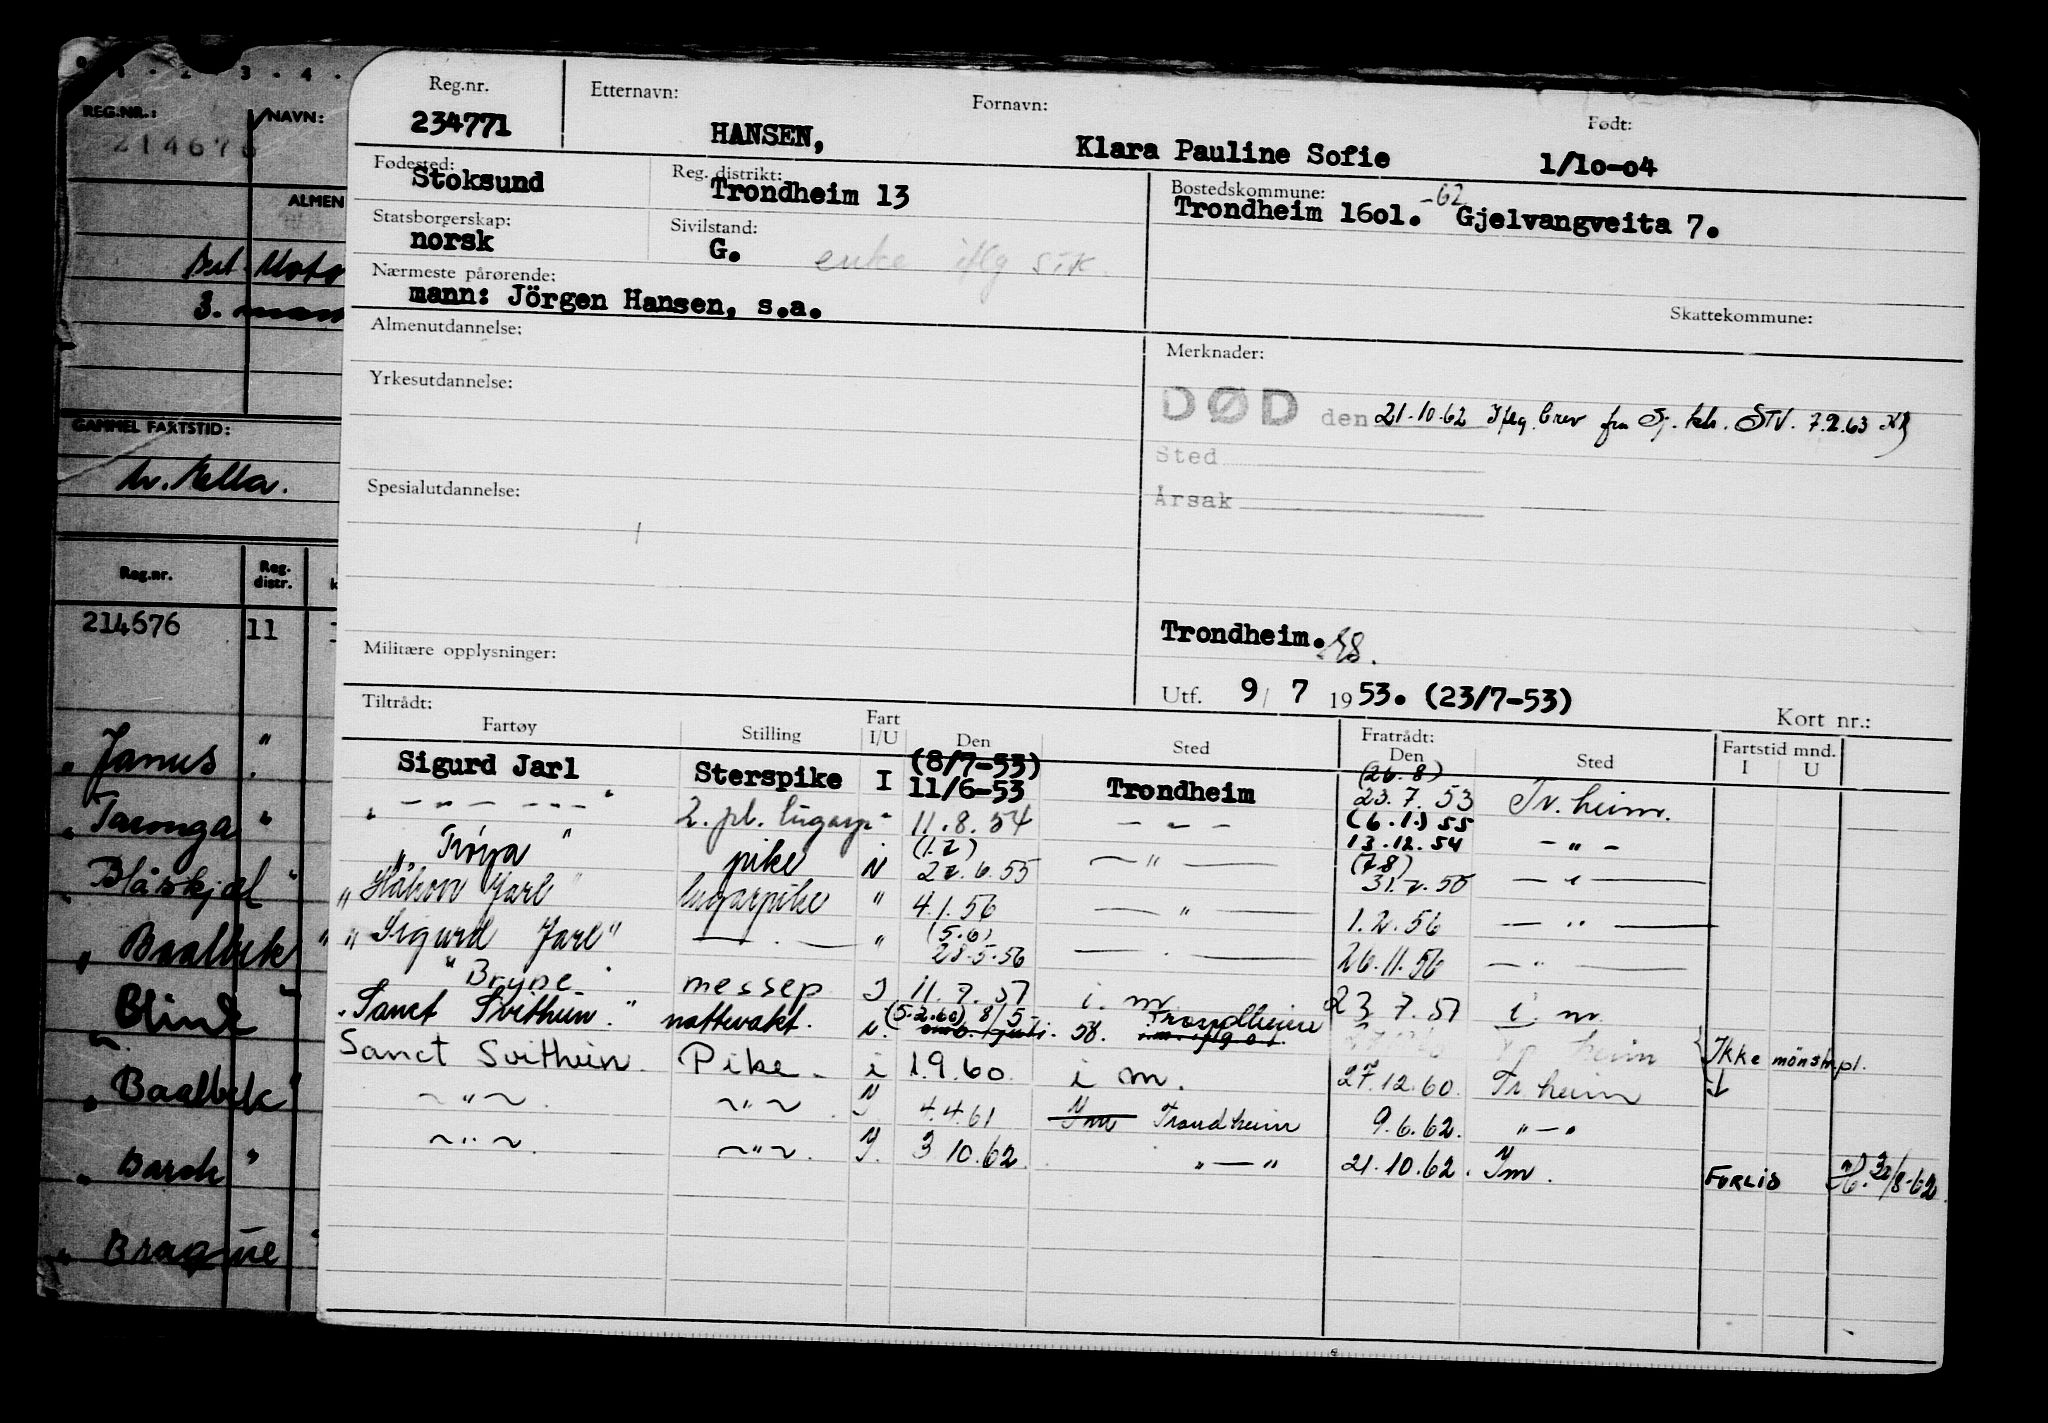 Reg.nr. Etternavn: Fornavn: Født:
234771 HANSEN, Klara Pauline Sofie 1/1o-o4
Fødested: Reg. distrikt: Bostedskommune:
Stoksund Trondheim 13 Trondheim 16o1. -62 Gjelvangveita 7.
Statsborgerskap: Sivilstand:
norsk G. enke iflg
Nærmeste pårørende:
mann: Jörgen Hansen, s.a.
Skattekommune:
Almenutdannelse: Merknader:
Yrkesutdannelse:
DØD den 21.10.62 Iflg. brev fra STV. 7.2.63
Sted
Årsak
Spesialutdannelse:
Trondheim.
Militære opplysninger:
Utf. 9/ 7 1953. (23/7-53)
Kort nr.:
Tiltrådt: Fratrådt:
Fartøy Stilling Fart I/U Den Sted Den Sted Fartstid mnd. I U
Sigurd Jarl Sterspike I (8/7-53) 11/6-53 Trondheim (26.8) 23.7.53 Tr.heim.
" — " — " 2. pl. lugarp " 11.8.54 — " — (6.1.) 55 13.12.54 — " —
" " pike i (1.7) 22.6.55 — " — (7.8) 31.7.55 — " —
" Håkon Jarl " lugarpike " 4.1.56 — " — 1.2.56 — " —
" Sigurd Jarl " — . — " (5.6) 28.5.56 — . — 26.11.56 — " —
" messep I 11.7.57 i. m. 23.7.57 i. m.
" Sanct Svithun " nattevakt. i. (5.2.60) 8/5- 58. Trondheim heim
Sanct Svithun. Pike. i 1.9.60. i m. 27.12.60. Tr.heim Ikke mönstrpl.
~ " ~ . ~ " ~ I 4.4.61 Im Trondheim 9.6.62. " — "
~ " ~ . ~ " ~ . I. 3 10.62. " — " 21.10.62. Im. FORLIS
REG.NR.: NAVN:
214676
ALMEN
GAMMEL FARTSTID:
Reg.nr. Reg. distr.
214676 11
" Janus "
" Taronga "
" Blåskjel "
" Baalbek "
" Blink "
" Baalbek "
" Barok "
" Braque "